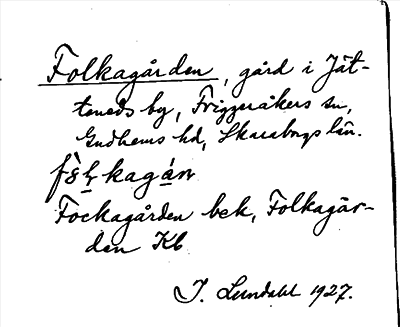 Folkagården, gård i Jät-
teneds by, Friggeråkers sn,
Gudhems hd, Skaraborgs län.
Fockagården bek, Folkagår-
den Kb
I. Lundahl 1927.